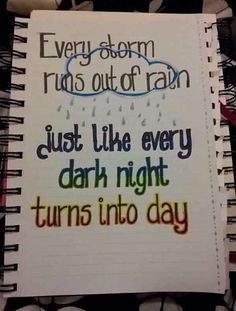 Every storm
runs out of rain
just like every
dark night
turns into day